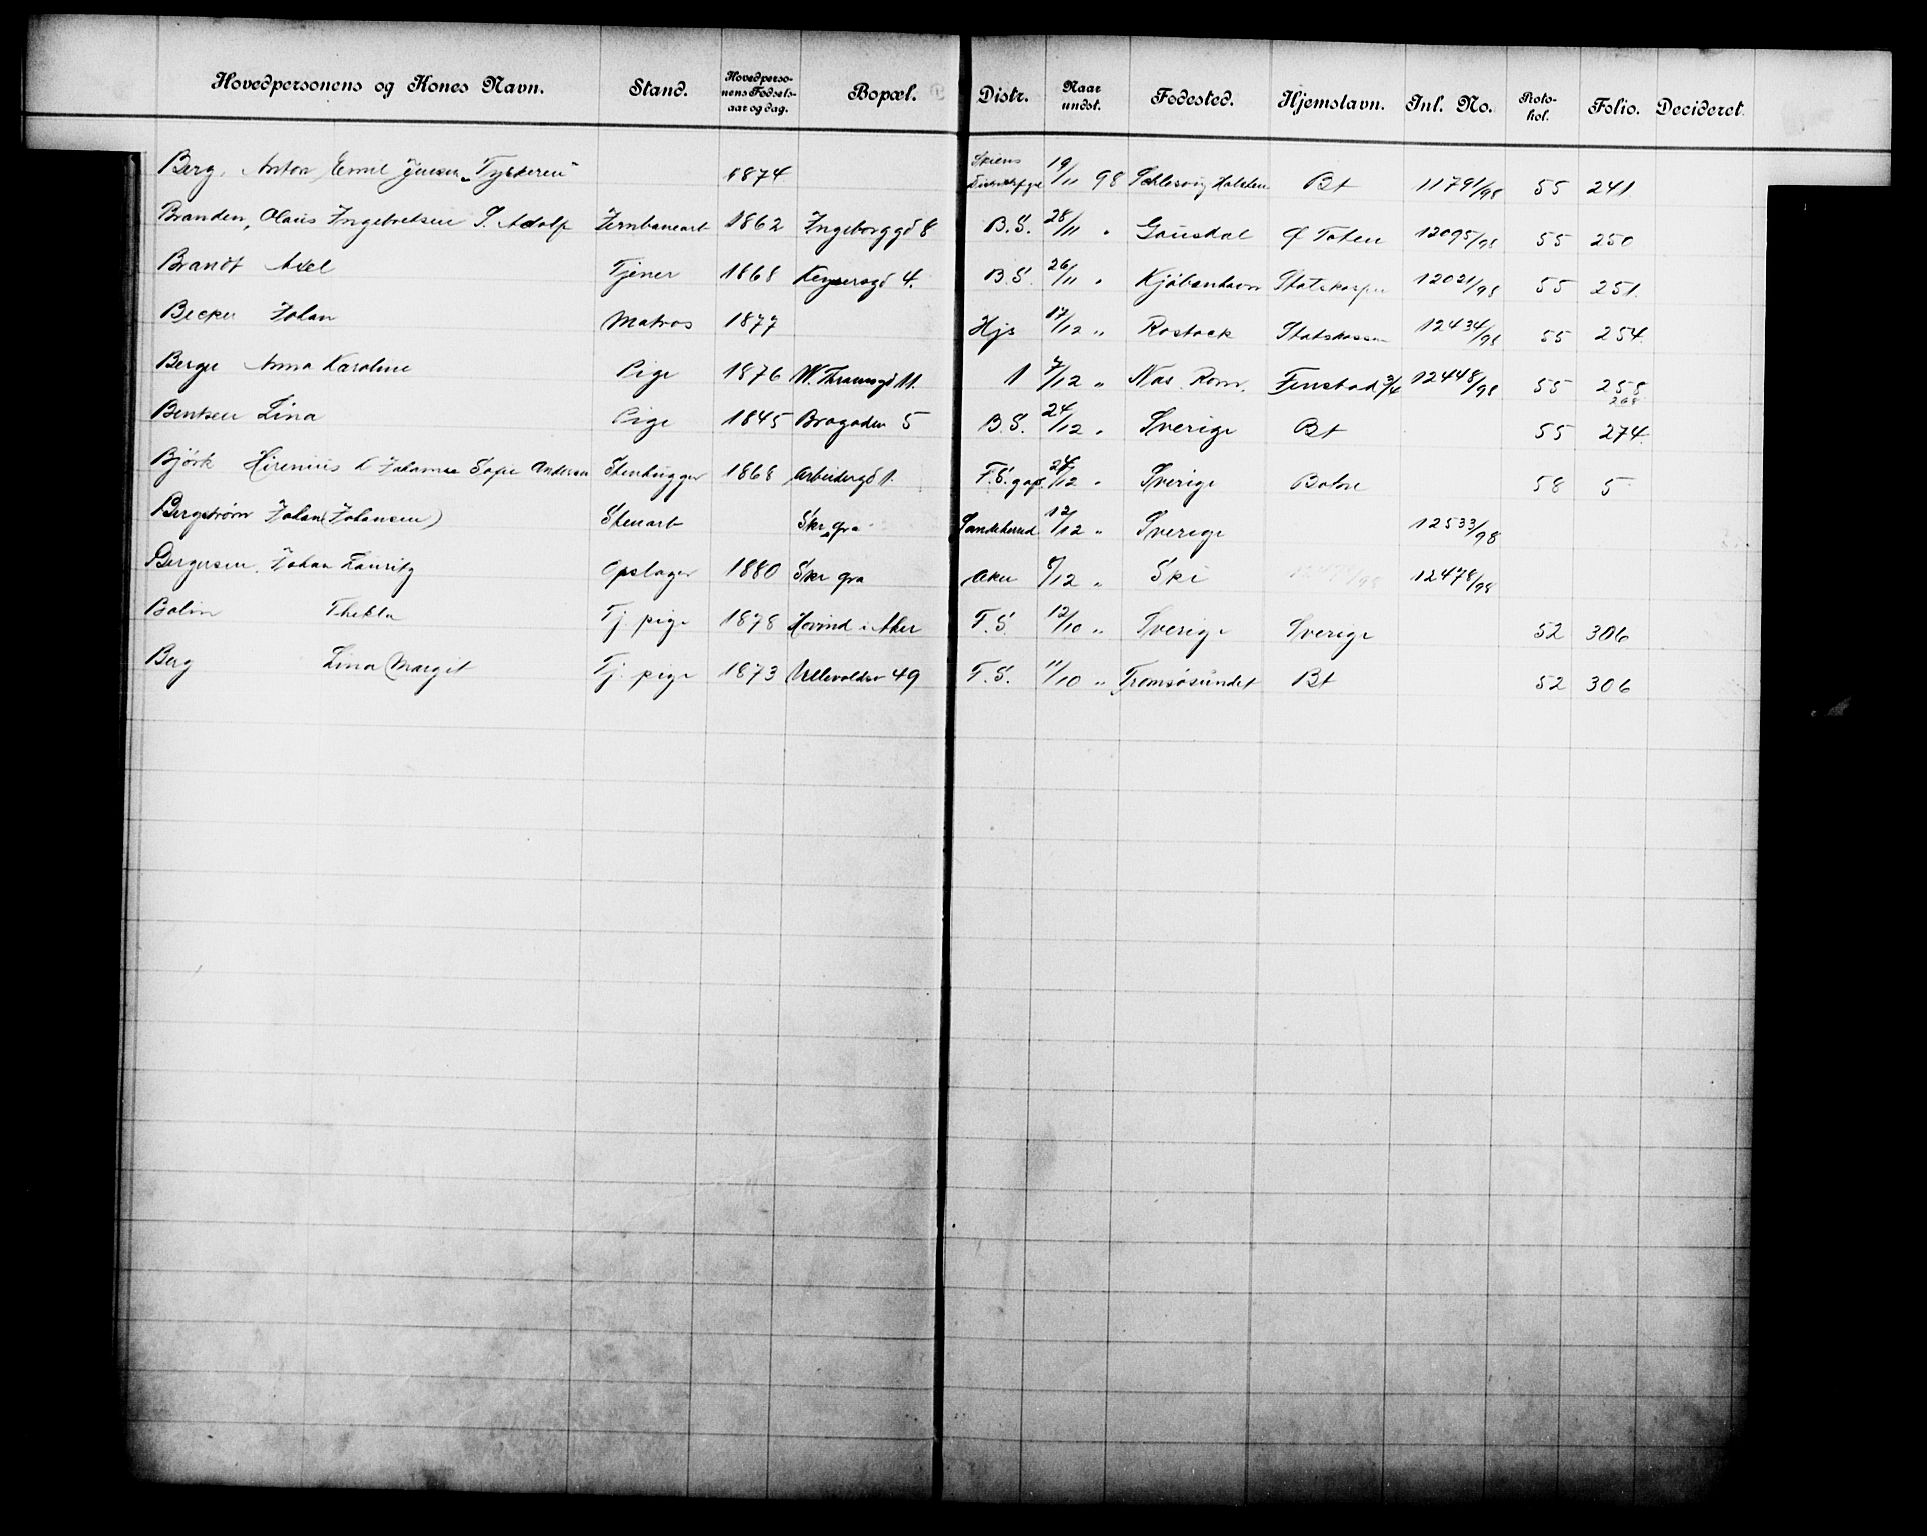 Hovedpersonens og Kones Navn. Stand. Hovedperso-nens Fødsels-aar og dag. Bopæl. Distr. Naar undst. Fødested. Hjemstavn. Inl. No. Proto-kol. Folio. Decideret.
Berg, Anton Emil Jensen "Tyskeren" 1874 Skiens 19/11 98 Schlesvig Holsten Bt 11791/98 55 241.
Branden, Olaus Ingebretsen S. Adolf Jernbanearb 1862 Ingeborggd 8 B.S. 28/11 " Gausdal Ø Toten 12095/98 55 250
Brandt Axel Tjener 1868 Keysersgd 4. B.S. 26/11 " Kjøbenhavn Statskassen 12021/98 55 251.
Becker Johan Matros 1877 Hjs 17/12 " Rostock Statskassen 12434/98 55 254.
Berger Anna Karoline Pige 1876 W. Thranesgd 11. 1 7/12 " Nas. Rom. Fenstad 3/4 12448/98 55 258
268
Bentsen Lina Pige 1845 Brogaden 5 B.S. 24/12 " Sverige Bt 55 274.
Björk Hirenius & Johanna Sofie Andersen Stenhugger 1868 Arbeidergd 1. F.S. 24/12 " Sverige 58 5
Bergström Johan (Johansen) Stenarb Skr gra Sandeherred 12/12 " Sverige 12533/98
Bergersen, Johan Lauritz Opslager 1880 Skr gra Aker 8/12 " Ski 12478/98
Bolin Thekla Tj. pige 1878 Hovind i Aker F.S. 12/10 " Sverige Sverige 52 306
Berg Lina Margit Tj. pige 1873 Ullevoldsv 49 F.S. 11/10 " Tromsøsundet Bt 52 306